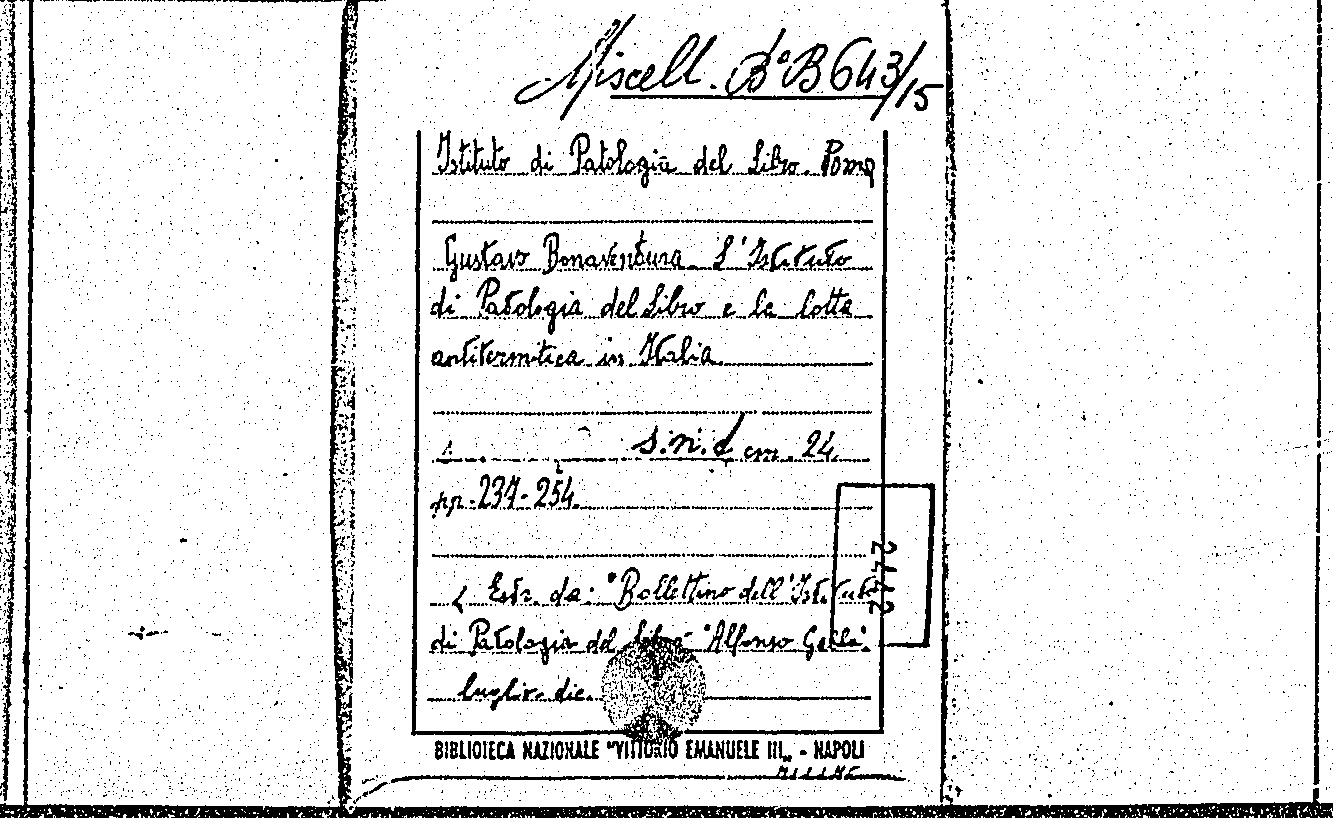 Miscell. Bª B 643/15
Istituto di Patologia del Libro. Roma
Gustavo Bonaventura L'Istituto
di Patologia del Libro e la lotta
antitermitica in Italia
s.n.d cm. 24
pp. 237-254.
( Estr. da: "Bollettino dell'Istituto
2442
di Patologia del Libro "Alfonso Gallo"
luglio-dic.
BIBLIOTECA NAZIONALE "VITTORIO EMANUELE III„ - NAPOLI